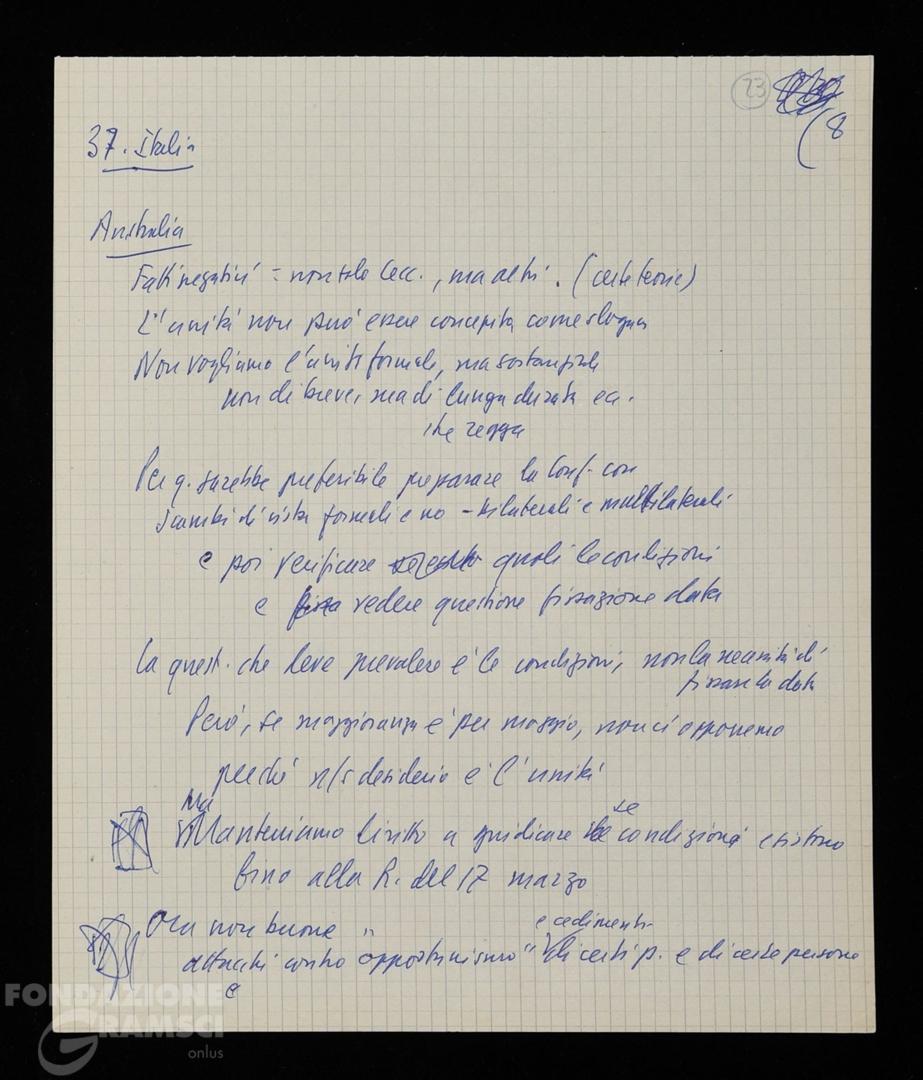 23
(8
37. Italia
Australia
Fatti negativi = non solo Cecc., ma altri. (certe teorie)
L'unità non può essere concepita come slogan
Non vogliamo l'unità formale, ma sostanziale
non di breve, ma di lunga durata ecc.
che regga
Per q. sarebbe preferibile preparare la Conf. con
scambi di vista formali e no - bilaterali e multilaterali
e poi verificare quali le condizioni
e vedere questione fissazione data
La quest. che deve prevalere è le condizioni, non la necessità di
fissare la data
Però, se maggioranza è per maggio, non ci opponiamo
perché n/s desiderio è l'unità
Ma
Manteniamo diritto a giudicare se condizioni esistono
fino alla R. del 17 marzo
Ora non buone
e cedimenti
attacchi contro "opportunismo" di certi p. e di certe persone
e
FONDAZIONE
GRAMSCI
onlus